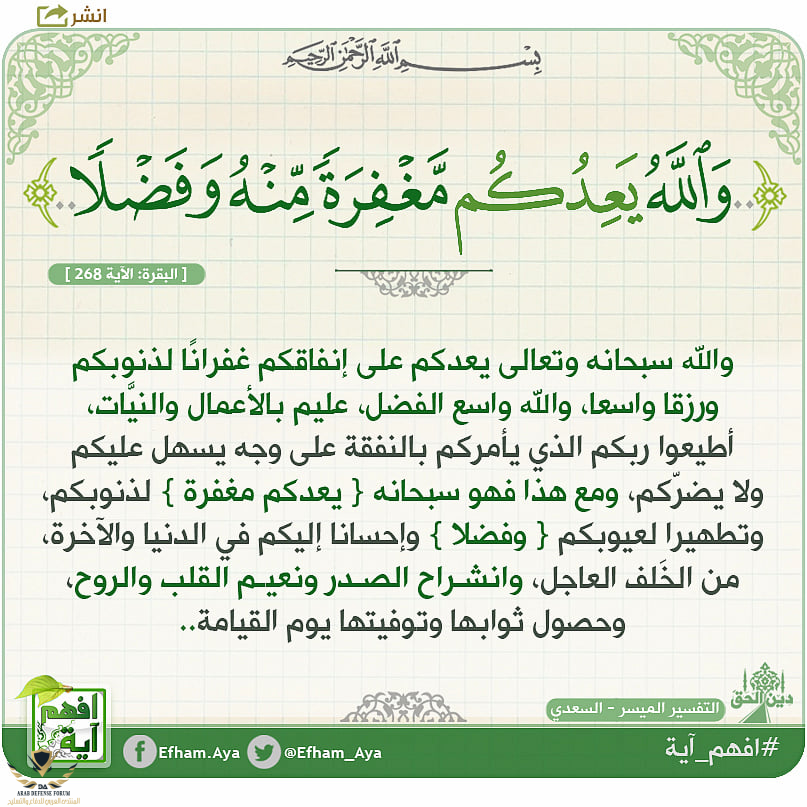 انشر
بِسْمِ اللَّهِ الرَّحْمَٰنِ الرَّحِيمِ
..وَٱللَّهُ يَعِدُكُم مَّغْفِرَةً مِّنْهُ وَفَضْلًا..
[ البقرة: الآية 268 ]
والله سبحانه وتعالى يعدكم على إنفاقكم غفرانًا لذنوبكم
ورزقا واسعا، والله واسع الفضل، عليم بالأعمال والنيَّات،
أطيعوا ربكم الذي يأمركم بالنفقة على وجه يسهل عليكم
ولا يضرّكم، ومع هذا فهو سبحانه { يعدكم مغفرة } لذنوبكم،
وتطهيرا لعيوبكم { وفضلا } وإحسانا إليكم في الدنيا والآخرة،
من الخَلف العاجل، وانشراح الصدر ونعيم القلب والروح،
وحصول ثوابها وتوفيتها يوم القيامة..
دين الحق
التفسير الميسر - السعدي
#افهم_آية
@Efham_Aya
Efham.Aya
افهم
آية
DA
ARAB DEFENSE FORUM
المنتدى العربي للدفاع والتسليح